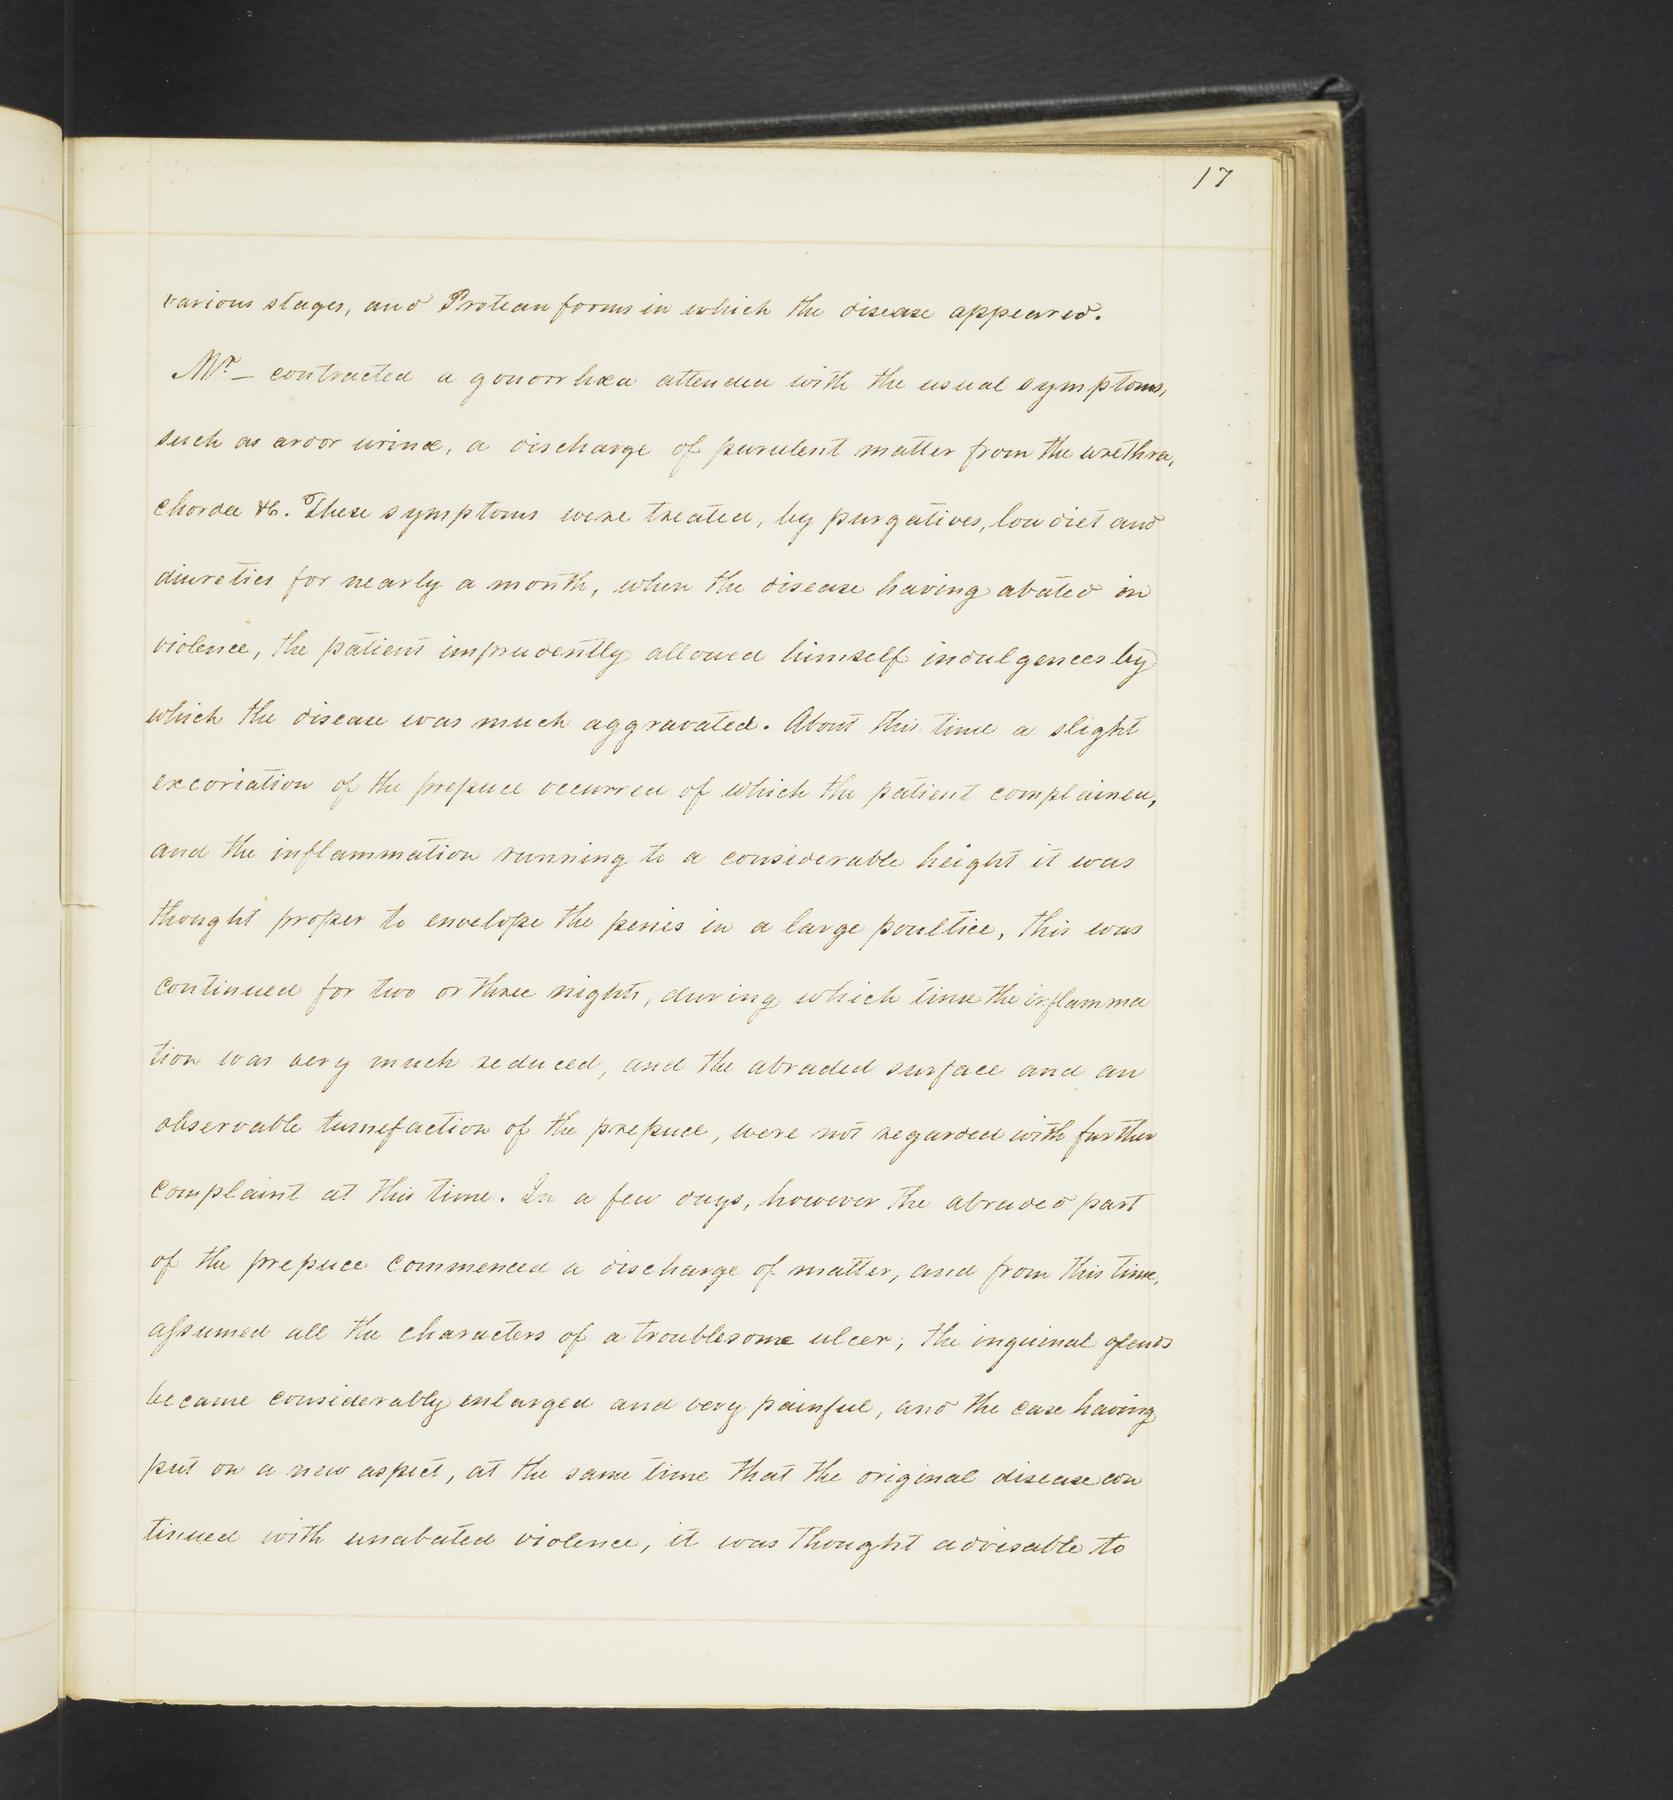 17
various stages, and Protean forms in which the disease appeared.
Mr — contracted a gonorrhæa attended with the usual symptoms,
such as ardor urinæ, a discharge of purulent matter from the urethra,
chordee &c. These symptoms were treated, by purgatives, low diet and
diuretics for nearly a month, when the disease having abated in
violence, the patient imprudently allowed himself indulgences by
which the disease was much aggravated. About this time a slight
excoriation of the prepuce occurred of which the patient complained,
and the inflammation running to a considerable height it was
thought proper to envelope the penis in a large poultice, this was
continued for two or three nights, during which time the inflamma
tion was very much reduced, and the abraded surface and an
observable tumefaction of the prepuce, were not regarded with further
complaint at this time. In a few days, however the abraded part
of the prepuce commenced a discharge of matter, and from this time,
assumed all the characters of a troublesome ulcer; the inguinal glands
became considerably enlarged and very painful, and the case having
put on a new aspect, at the same time that the original disease con
tinued with unabated violence, it was thought advisable to